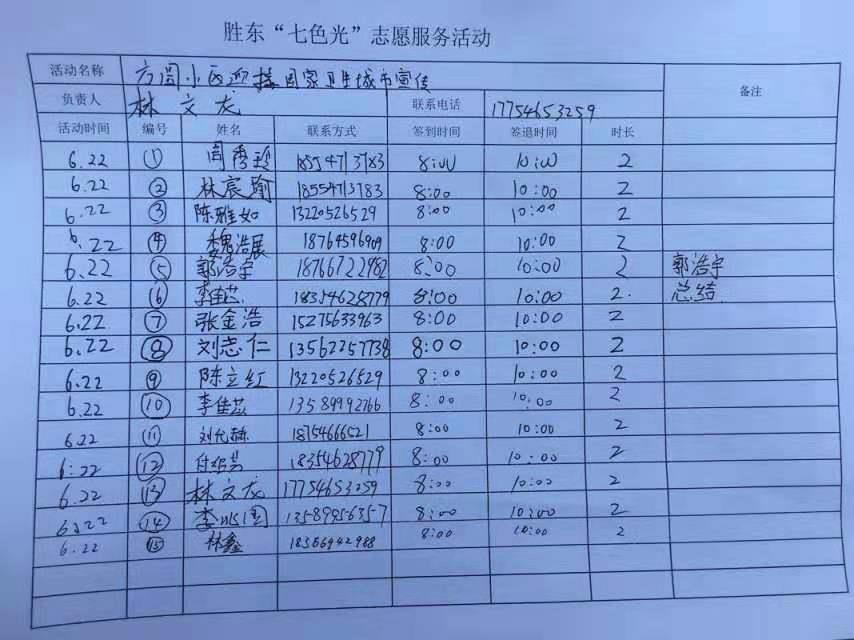 胜东“七色光”志愿服务活动
活动名称 方圆小区迎接国家卫生城市宣传 备注
负责人 林文龙 联系电话 17754653259
活动时间 编号 姓名 联系方式 签到时间 签退时间 时长
6.22 ① 周秀珍 18554713783 8:00 10:00 2
6.22 ② 林宸瑜 18554713783 8:00 10:00 2
6.22 ③ 陈雅如 13220526529 8:00 10:00 2
6.22 ④ 魏浩展 18764596909 8:00 10:00 2
6.22 ⑤ 郭浩宇 18766722982 8:00 10:00 2 郭浩宇
6.22 ⑥ 18354628779 8:00 10:00 2. 总结
6.22 ⑦ 张金浩 15275633963 8:00 10:00 2
6.22 ⑧ 刘志仁 13562257738 8:00 10:00 2
6.22 ⑨ 陈立红 13220526529 8:00 10:00 2
6.22 ⑩ 李佳益 13589992766 8:00 10:00 2
6.22 ⑪ 刘允赫 18754666521 8:00 10:00 2
6:22 ⑫ 18354628779 8:00 10:00 2
6.22 ⑬ 林文龙 17754653259 8:00 10:00 2
6.22 ⑭ 李兆国 13589956357 8:00 10:00 2
6.22 ⑮ 林鑫 18366942988 8:00 10:00 2